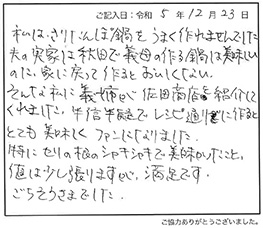 ご記入日：令和 5 年 12 月 23 日
私は、きりたんぽ鍋をうまく作れませんでした
夫の実家は秋田で義母の作る鍋は美味しい
のに、家に戻って作るとおいしくない。
そんな私に義姉が佐田商店を紹介して
くれました。半信半疑でレシピ通りに作ると
とても美味しくファンになりました。
特にセリの根のシャキシャキで美味かったこと。
値は少し張りますが、満足です。
ごちそうさまでした。
ご協力ありがとうございました。